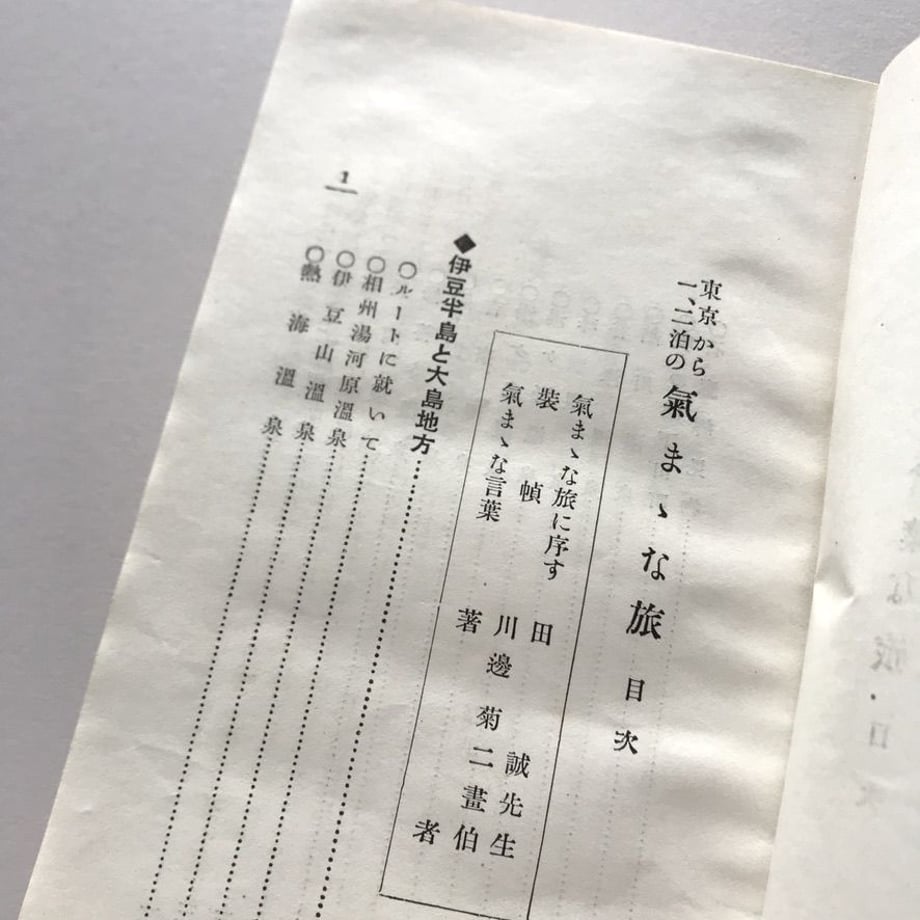 東京から
一、二泊の
氣まゝな旅 目次
氣まゝな旅に序す 田 誠先生
裝幀 川邊菊二畫伯
氣まゝな言葉 著者
◆伊豆半島と大島地方
〇ルートに就いて
〇相州湯河原溫泉
〇伊豆山溫泉
〇熱海溫泉
1